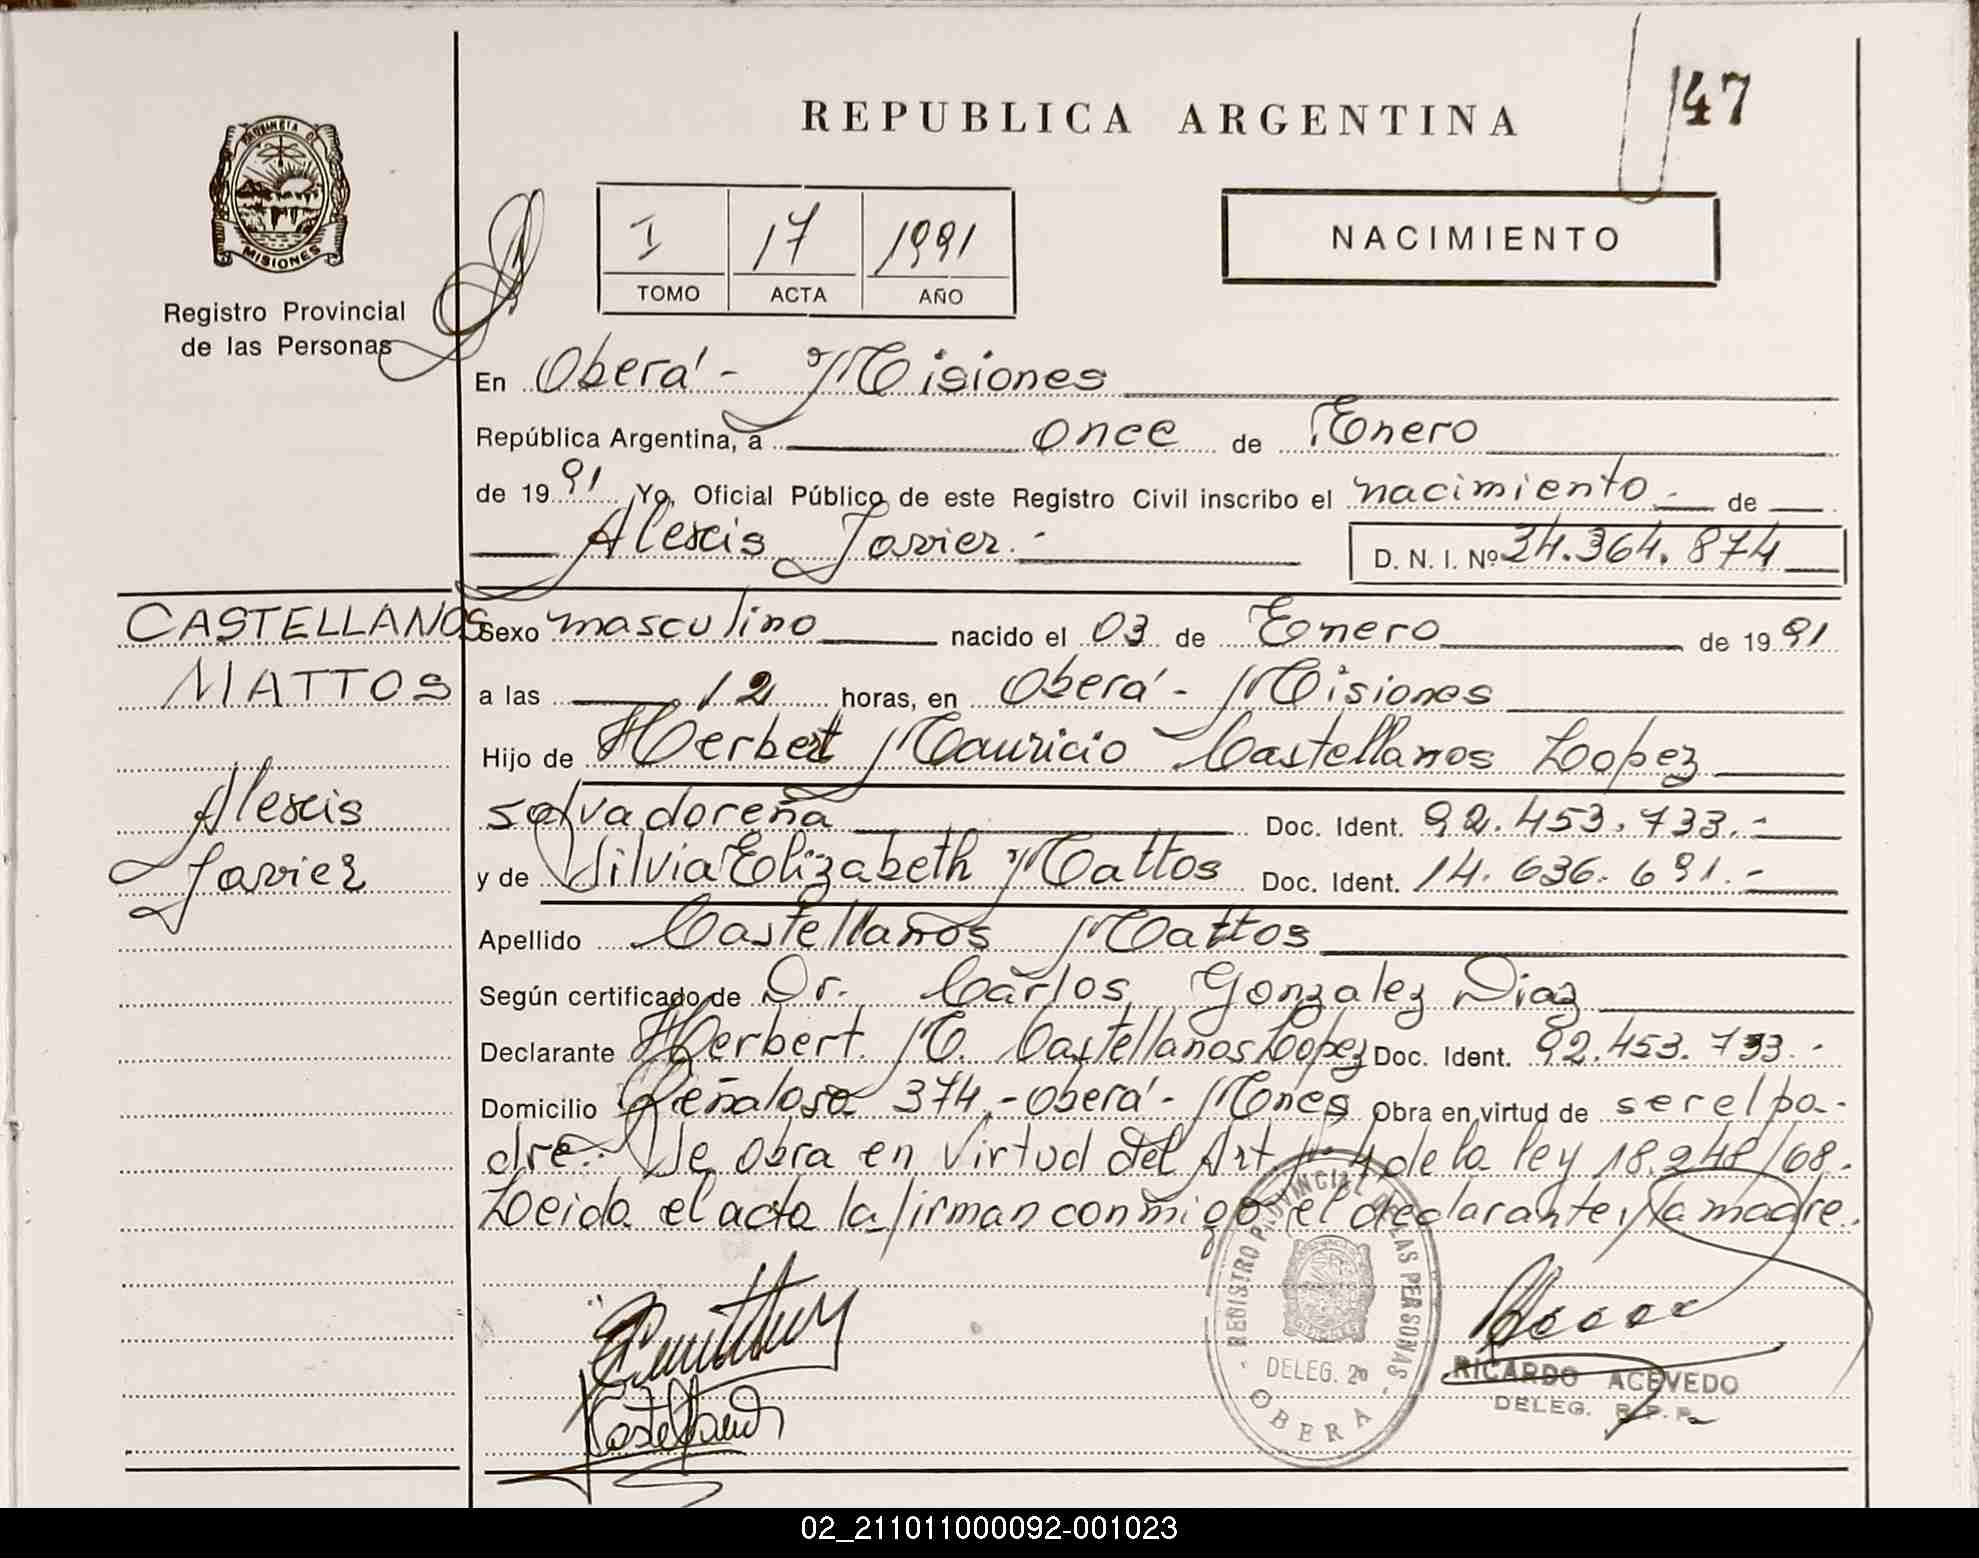 REPUBLICA ARGENTINA
147
PROVINCIA DE
MISIONES
Registro Provincial
de las Personas
I 17 1991
TOMO ACTA AÑO
NACIMIENTO
En Oberá - Misiones
República Argentina, a once de Enero
de 1991 Yo, Oficial Público de este Registro Civil inscribo el nacimiento.- de
Alexis Javier.-
D. N. I. Nº 34.364.874
CASTELLANOS
MATTOS
Alexis
Javier
Sexo masculino nacido el 03 de Enero de 1991
a las 12 horas, en Oberá - Misiones
Hijo de Herbert Mauricio Castellanos Lopez
salvadoreña Doc. Ident. 92.453.733.-
y de Silvia Elizabeth Mattos Doc. Ident. 14.636.691.-
Apellido Castellanos Mattos
Según certificado de Dr. Carlos Gonzalez Diaz
Declarante Herbert M. Castellanos Lopez Doc. Ident. 92.453.733.-
Domicilio Peñaloza 374.- Oberá - Mnes Obra en virtud de ser el pa-
dre.- Se obra en virtud del Art. 4 de la ley 18.248/68.
Leida el acta la firman conmigo el declarante y la madre.
REGISTRO PROVINCIAL DE LAS PERSONAS
DELEG. 2ª
OBERA
Castellanos
RICARDO ACEVEDO
DELEG. R.P.P.
02_211011000092-001023